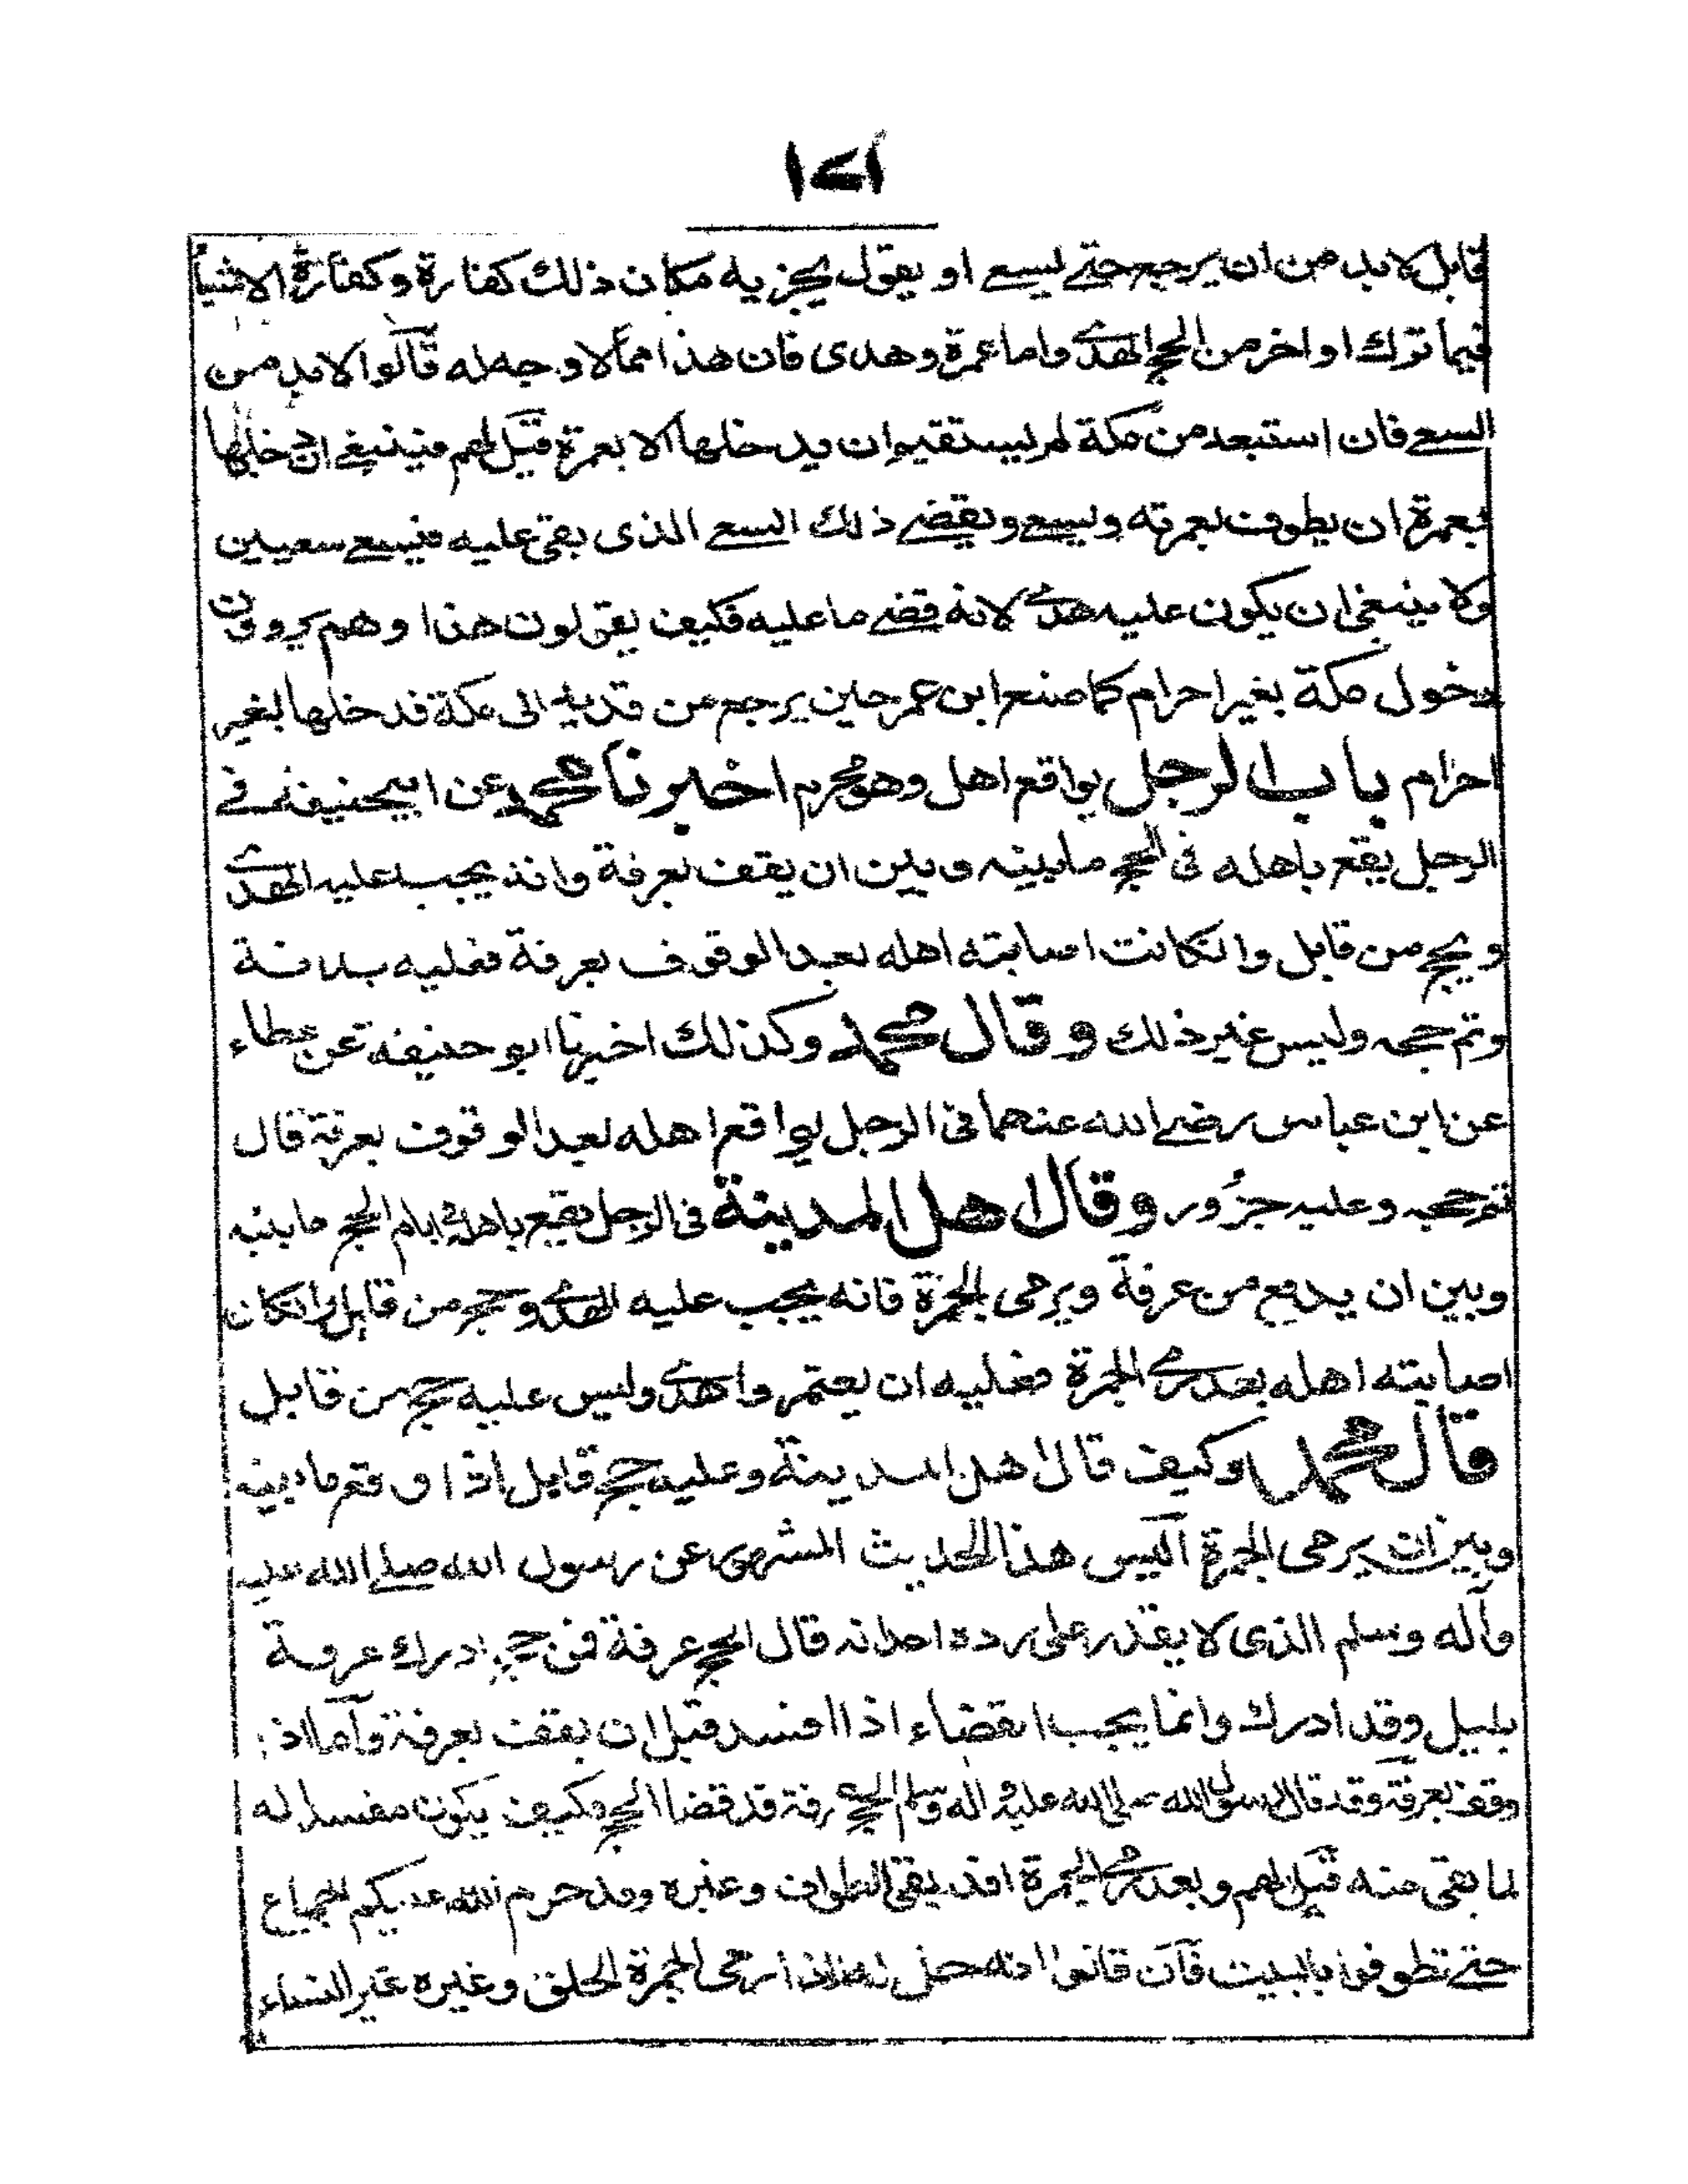 ١٤١
قابل لا بد من ان يرجع حتے يسعے او يقول يجزيه مكان ذلك كفارة وكفارة الاشيا
فيما ترك او اخر من الحج الهدے واما عمرة وهدى فان هذا مما لا وجه له قالوا لا بد من
السعے فان استبعد من مكة لم يستقيم ان يدخلها الا بعمرة قيل لهم فينبغے ان دخلها
بعمرة ان يطوف لعمرته ويسعے ويقضے ذلك السعے الذى بقى عليه فيسعے سعيين
ولا ينبغى ان يكون عليه هدے لانه قضے ما عليه فكيف يقولون هذا وهم يرون
دخول مكة بغير احرام كما صنع ابن عمر حين يرجع من قديد الى مكة فدخلها بغير
احرام باب الرجل يواقع اهل وهو محرم اخبرنا محمد عن ابيحنيفة فے
الرجل يقع باهله فى الحج ما بينه وبين ان يقف بعرفة وانه يجب عليه الهدے
ويحج من قابل وانكانت اصابته اهله بعد الوقوف بعرفة فعليه بدنة
وتم حجه وليس غير ذلك وقال محمد وكذلك اخبرنا ابو حنيفة عن عطاء
عن ابن عباس رضے الله عنهما فى الرجل يواقع اهله بعد الوقوف بعرفة قال
تم حجه وعليه جزور وقال اهل المدينة فى الرجل يقع باهله فى ايام الحج ما بينه
وبين ان يدفع من عرفة ويرمى الجمرة فانه يجب عليه الهدے وحج من قابل وانكان
اصابته اهله بعد رمے الجمرة فعليه ان يعتمر واهدے وليس عليه حج من قابل
قال محمد وكيف قال اهل المدينة وعليه حج قابل اذا وقع ما بينه
وبين ان يرمى الجمرة اليس هذا الحديث المشهور عن رسول الله صلے الله عليه
وآله وسلم الذى لا يقدر على رده احد انه قال الحج عرفة فمن ادرك عرفة
بليل وقد ادرك وانما يجب القضاء اذا افسد قبل ان يقف بعرفة واما اذا
وقف بعرفة وقد قال رسول الله صلى الله عليه واله وسلم الحج عرفة قد قضا الحج وكيف يكون مفسدا له
لما بقى منه قيل لهم وبعد رمے الجمرة قد يبقى الطواف وغيره وقد حرم الله عليكم الجماع
حتے تطوفوا بالبيت فان قالوا انه حل له اذا رمى الجمرة الحلق وغيره غير النساء